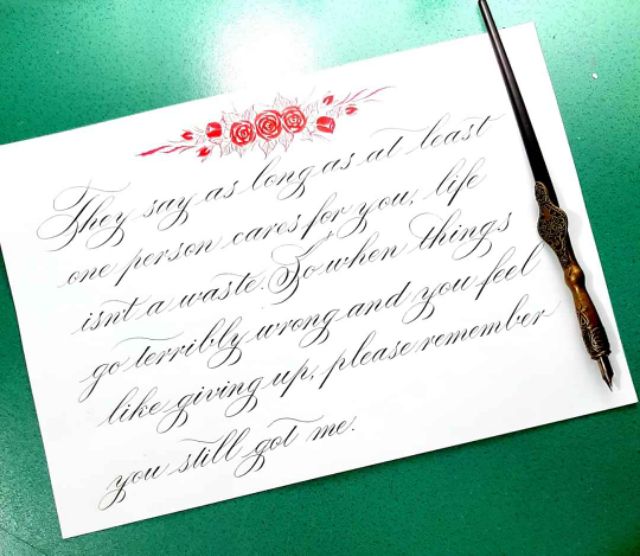 They say as long as at least
one person cares for you, life
isn't a waste. So when things
go terribly wrong and you feel
like giving up, please remember
you still got me.